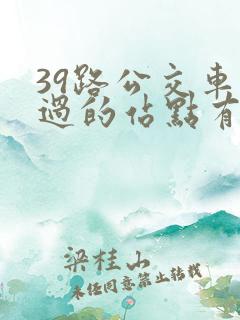 39路公交車
過的佔點有
梁桂山
未经同意禁止转载